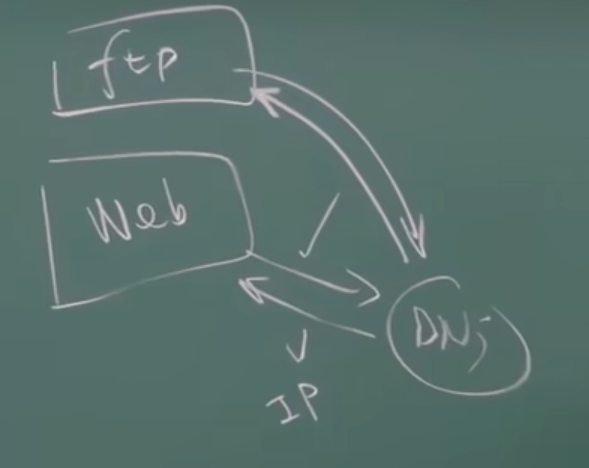 ftp
Web
DNS
IP